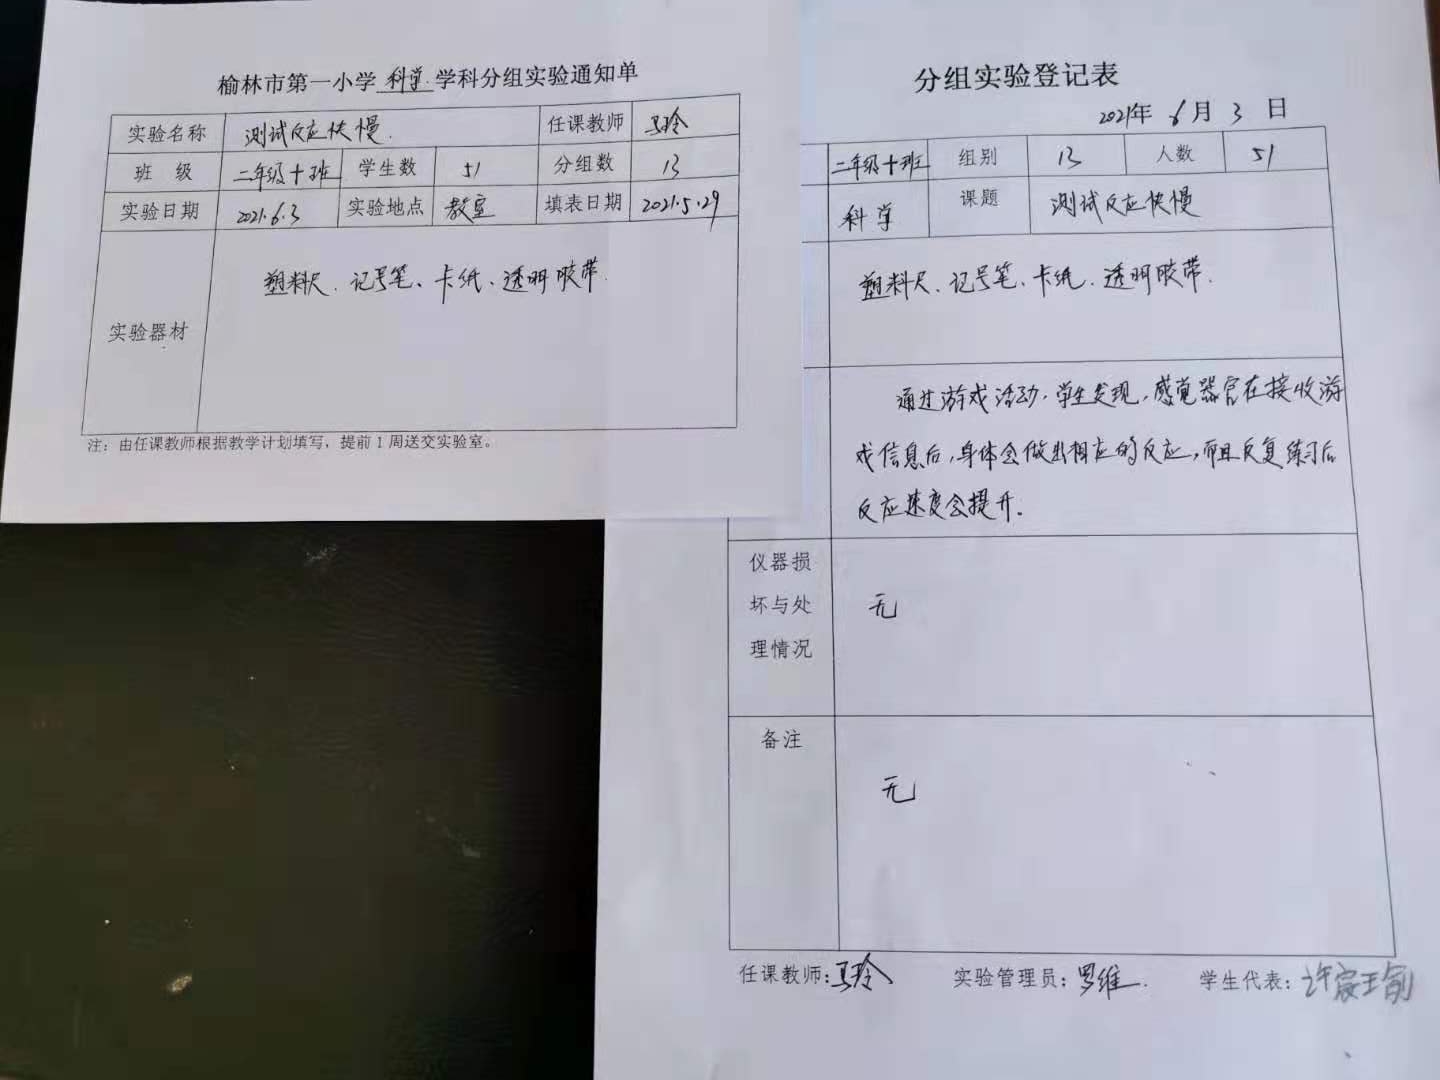 榆林市第一小学 科学 学科分组实验通知单
实验名称 测试反应快慢. 任课教师 马玲
班 级 二年级十班 学生数 51 分组数 13
实验日期 2021.6.3 实验地点 教室 填表日期 2021.5.29
实验器材 塑料尺、记号笔、卡纸、透明胶带.
注：由任课教师根据教学计划填写，提前 1 周送交实验室。
分组实验登记表
2021年 6月 3 日
二年级十班 组别 13 人数 51
科学 课题 测试反应快慢
塑料尺、记号笔、卡纸、透明胶带.
通过游戏活动，学生发现，感觉器官在接收游
戏信息后，身体会做出相应的反应，而且反复练习后
反应速度会提升.
仪器损
坏与处 无
理情况
备注
无
任课教师：马玲 实验管理员：罗维. 学生代表：